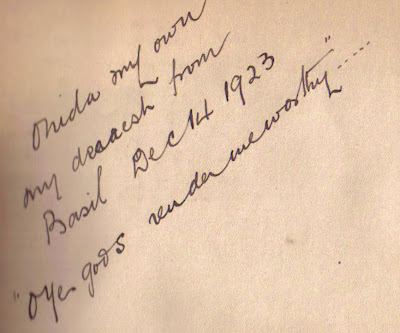 Onida my own
my deaesh from
Basil Dec 14 1923
"O Ye gods render me worthy" .....